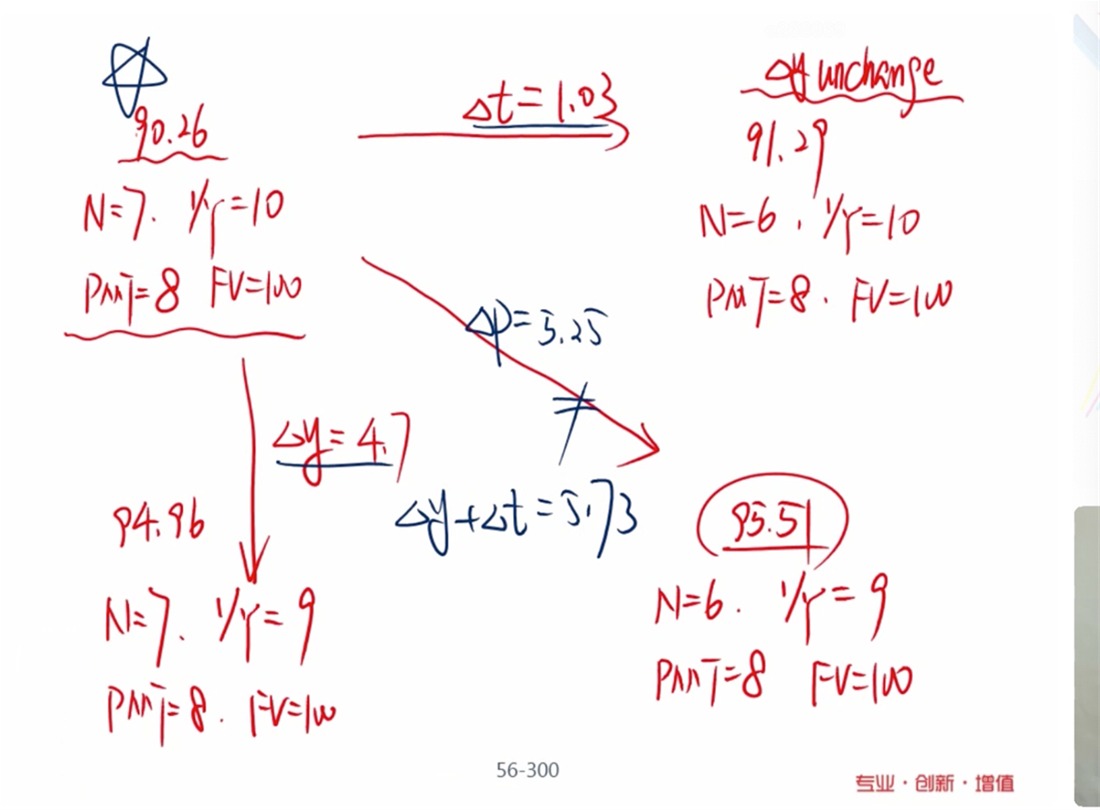 90.26
N=7. I/Y=10
PMT=8 FV=100
Δt=1.03
Δy unchange
91.29
N=6. I/Y=10
PMT=8. FV=100
Δp=5.25
≠
Δy=4.7
Δy+Δt=5.73
94.96
N=7. I/Y=9
PMT=8. FV=100
95.51
N=6. I/Y=9
PMT=8 FV=100
56-300
专业·创新·增值